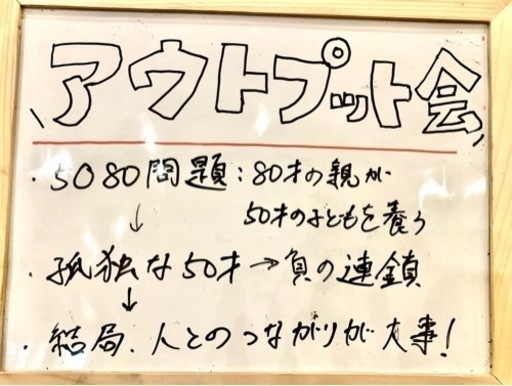 アウトプット会
・5080問題:80才の親が
50才の子どもを養う
↓
・孤独な50才→負の連鎖
↓
・結局、人とのつながりが大事!